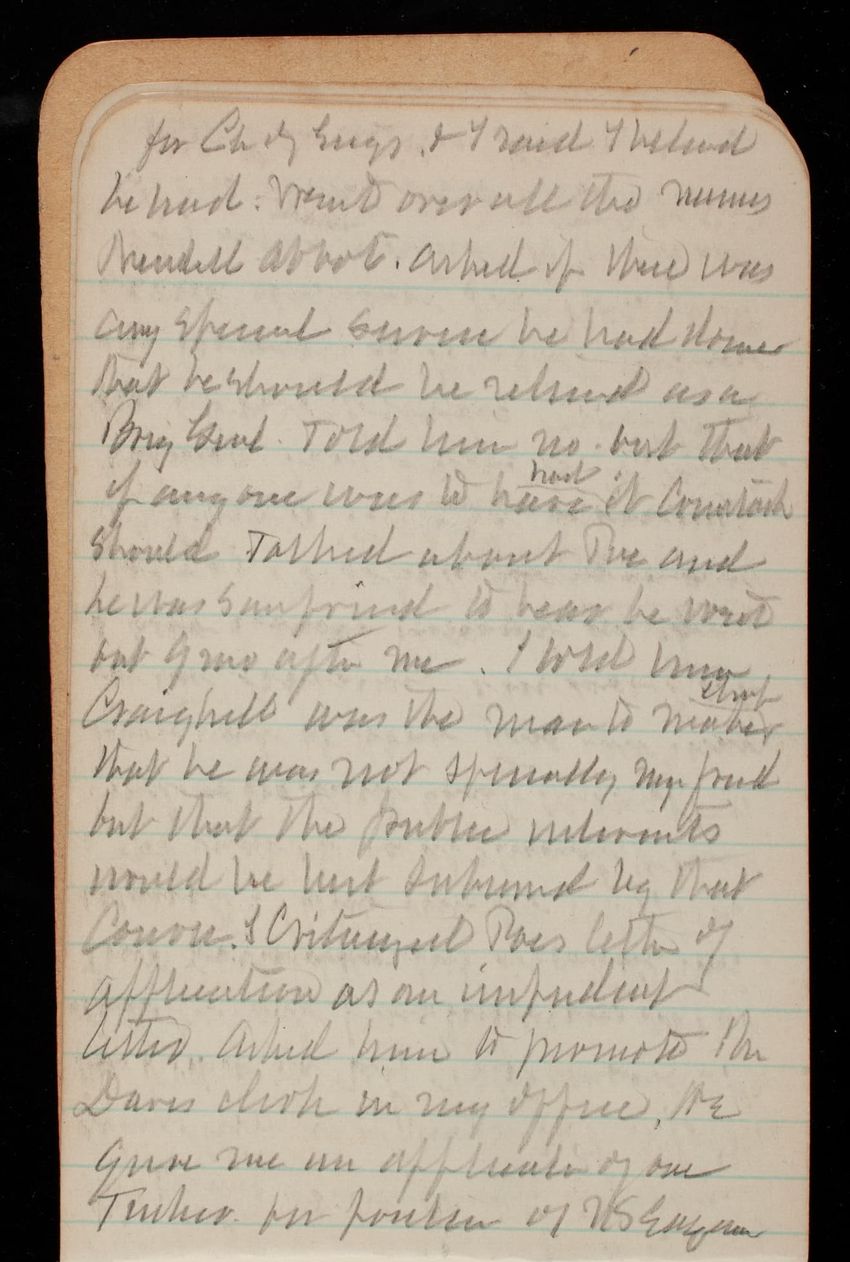 for Ch of Engs. & I said I believed
he had. Went over all the names
Mendell Abbot. asked if there was
any special service he had done
that he should be retired as a
Brig Genl. Told him no. but that
if any one was to have had it Comstock
should Talked about Poe and
he was surprised to hear he went
out Gnr after me. I told him
Craighill was the man to make that
that he was not specially my friend
but that the public interests
would be best subserved by that
Course. I Criticized Poes letter of
application as an impudent
letter. Asked him to promote Mr
Davis clerk in my office. He
gave me an application of one
for position of US Engineer